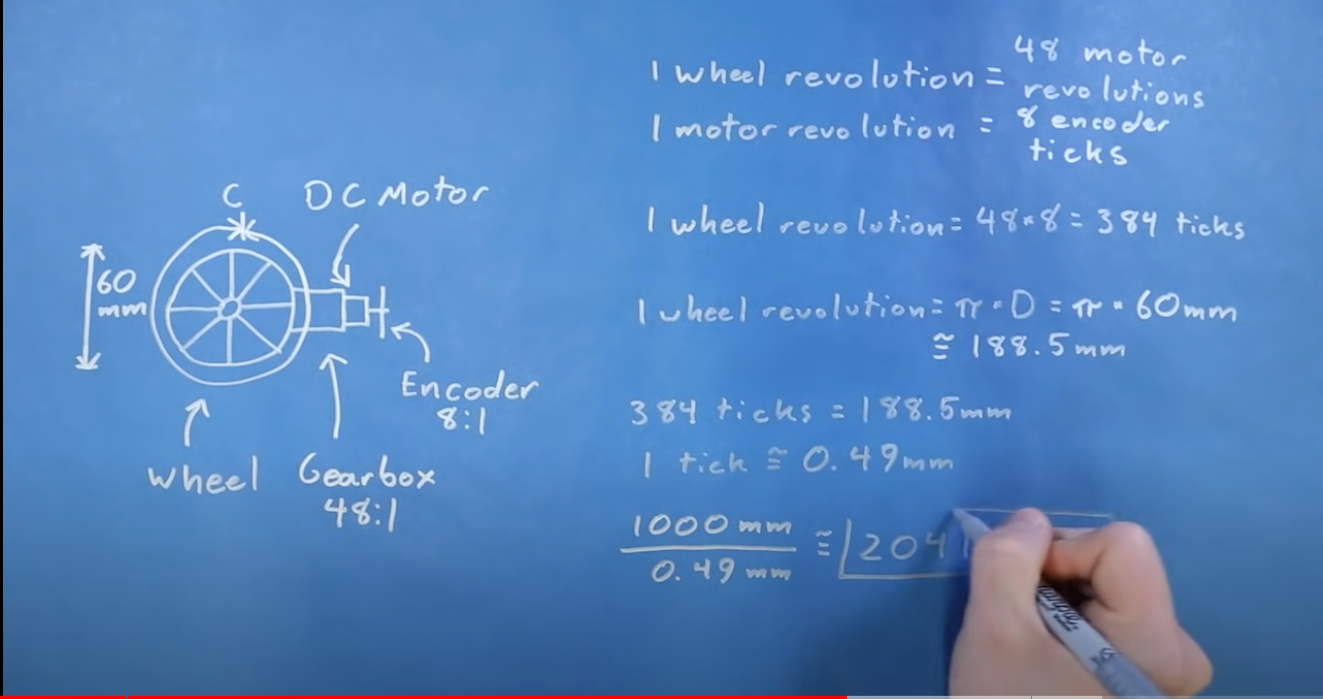 C
DC Motor
60
mm
Encoder
8:1
Wheel
Gearbox
48:1
1 wheel revolution = 48 motor revolutions
1 motor revolution = 8 encoder ticks
1 wheel revolution = 48*8 = 384 ticks
1 wheel revolution = π · D = π · 60mm
≅ 188.5mm
384 ticks = 188.5mm
1 tick ≅ 0.49mm
1000 mm
0.49 mm
≅ 204